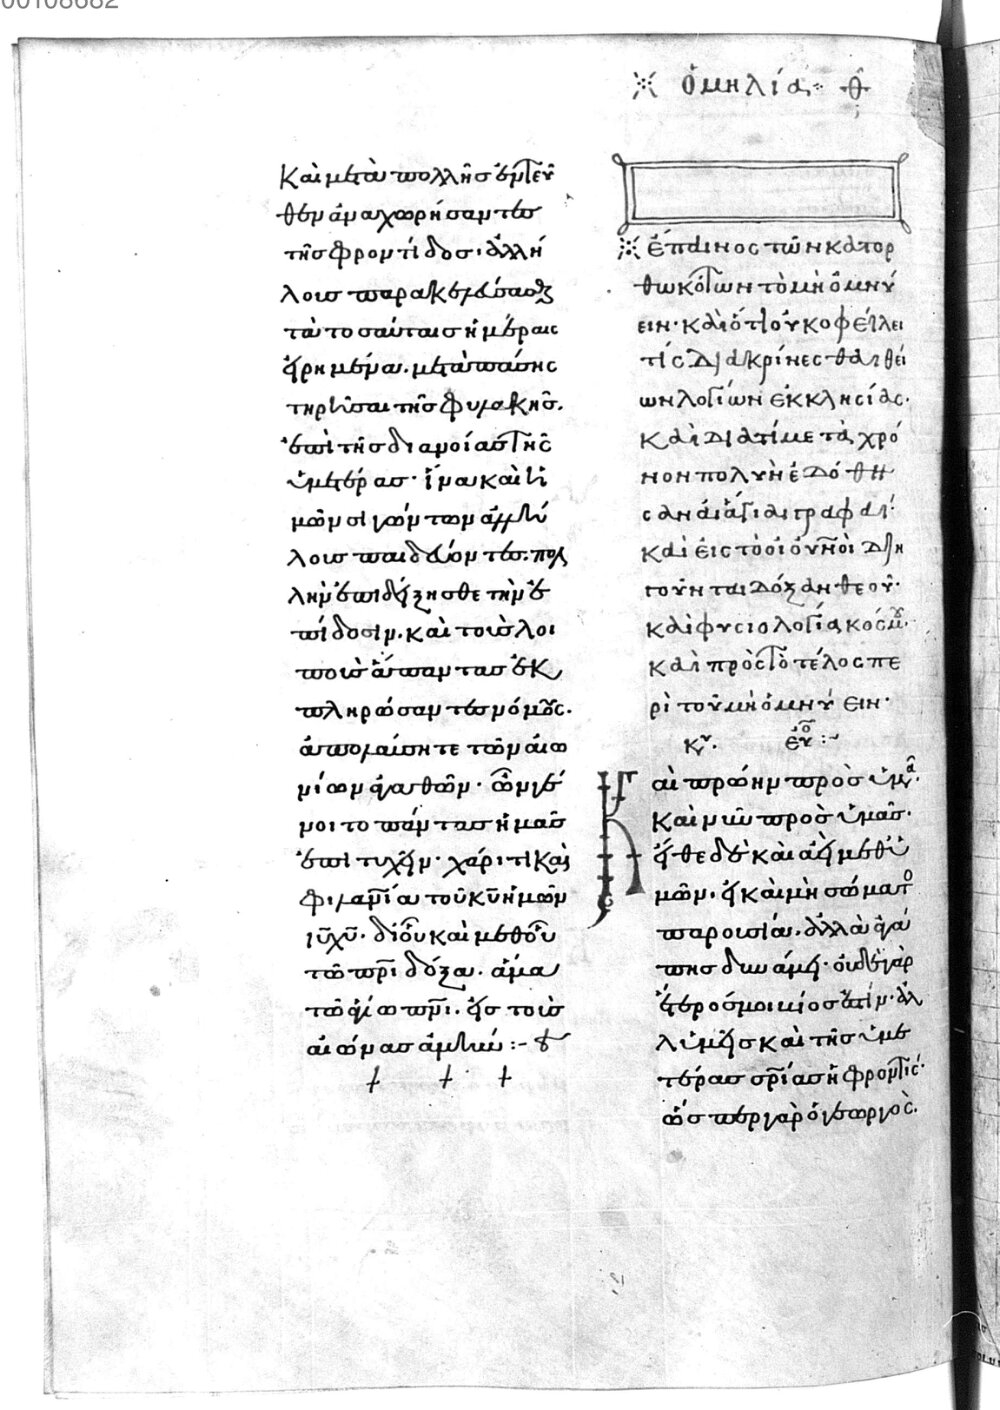 00108682
※ ὁμηλία θ
καὶ μετὰ πολλῆς ἐντεῦ
θεν ἀναχωρήσαντες
τῆς φροντίδος· ἀλλή
λοις παρακελεύσασθε
ταῦτο σαύταις ἡμέραις
εἰρημένα. μετὰ πάσης
τηρῆσαι τῆς φυλακῆς.
ἐπὶ τῆς διανοίας τῆς
ὑμετέρας· ἵνα καὶ ἡ
μῶν σιγώντων ἀλλή
λοις παιδεύοντες. πολ
λὴν ἐπιδείξησθε τὴν ἐ
πίδοσιν. καὶ τοὺς λοι
ποὺς ἅπαντας ἐκ
πληρώσαντες νόμους.
ἀπολαύσητε τῶν αἰω
νίων ἀγαθῶν· ὧν γέ
νοιτο πάντας ἡμᾶς
ἐπιτυχεῖν· χάριτι καὶ
φιλανίᾳ τοῦ κυ ἡμῶν
ιυ χυ· δι' οὗ καὶ μεθ' οὗ
τῶ πρι δόξα. ἅμα
τῶ ἁγίω πνι. εἰς τοὺς
αἰώνας ἀμήν :-
※ ἔπαινος τῶν κατορ
θωκότων τὸ μὴ ὀμνύ
ειν· καὶ ὅτι οὐκ ὀφείλει
τίς διακρίνεσθαι θεί
ων λογίων ἐκκλησίας.
καὶ διατί μετὰ χρό
νον πολὺν ἐδόθη
σαν αἱ ἅγιαι γραφαί·
καὶ εἰς τὸ οἱ οὐνοὶ διη
γοῦνται δόξαν θεοῦ·
καὶ φυσιολογία κόσμου.
καὶ πρὸς τὸ τέλος πε
ρὶ τοῦ μὴ ὀμνύειν·
κυ. εὐο :-
Καὶ πρώην πρὸς ὑμᾶς.
καὶ νῦν πρὸς ὑμᾶς·
εἴθε δὲ καὶ ἀεὶ μεθ' ὑ
μῶν. εἰ καὶ μὴ σώματος
παρουσία. ἀλλὰ ἀγά
πης δυνάμει· οὐδὲ γὰρ
ἕτερός μοι βίος ἐστίν· ἀλ
λ' ὑμεῖς καὶ τῆς ὑμε
τέρας σρίας ἡ φροντίς·
ὥσπερ γὰρ ὁ γεωργὸς.